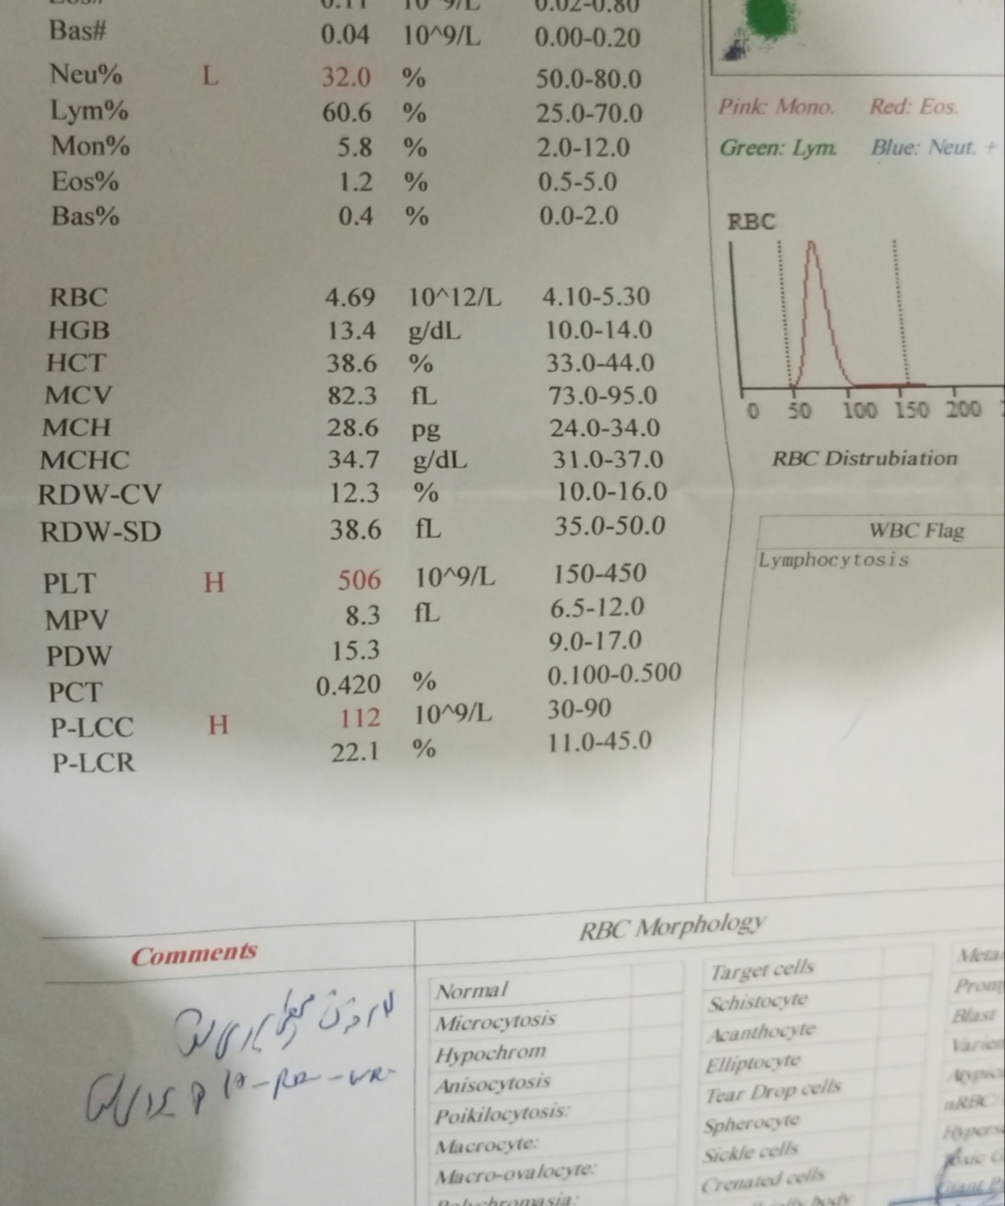 0.11 10^9/L 0.02-0.80
Bas# 0.04 10^9/L 0.00-0.20
Neu% L 32.0 % 50.0-80.0
Lym% 60.6 % 25.0-70.0
Mon% 5.8 % 2.0-12.0
Eos% 1.2 % 0.5-5.0
Bas% 0.4 % 0.0-2.0
RBC 4.69 10^12/L 4.10-5.30
HGB 13.4 g/dL 10.0-14.0
HCT 38.6 % 33.0-44.0
MCV 82.3 fL 73.0-95.0
MCH 28.6 pg 24.0-34.0
MCHC 34.7 g/dL 31.0-37.0
RDW-CV 12.3 % 10.0-16.0
RDW-SD 38.6 fL 35.0-50.0
PLT H 506 10^9/L 150-450
MPV 8.3 fL 6.5-12.0
PDW 15.3 9.0-17.0
PCT 0.420 % 0.100-0.500
P-LCC H 112 10^9/L 30-90
P-LCR 22.1 % 11.0-45.0
Pink: Mono. Red: Eos.
Green: Lym. Blue: Neut. +
RBC
0 50 100 150 200
RBC Distrubiation
WBC Flag
Lymphocytosis
Comments
RBC Morphology
Normal
Microcytosis
Hypochrom
Anisocytosis
Poikilocytosis:
Macrocyte:
Macro-ovalocyte:
Target cells
Schistocyte
Acanthocyte
Elliptocyte
Tear Drop cells
Spherocyte
Sickle cells
Crenated cells
Blast